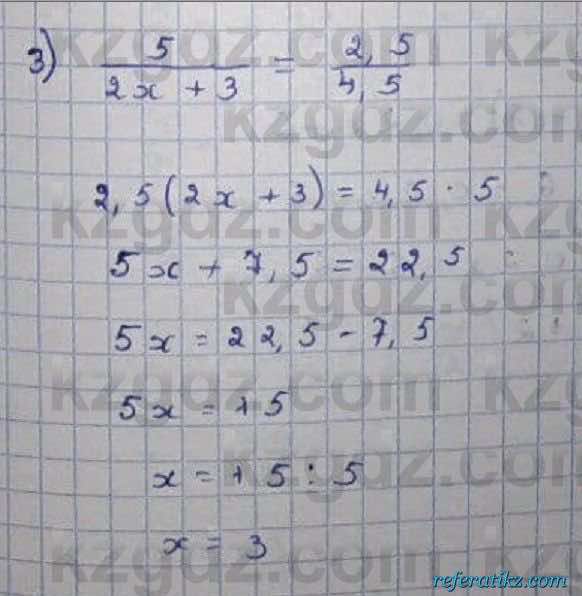 3) 5 / (2x + 3) = 2,5 / 4,5
2,5(2x + 3) = 4,5 · 5
5x + 7,5 = 22,5
5x = 22,5 - 7,5
5x = 15
x = 15 : 5
x = 3
kzgdz.com
referatikz.com